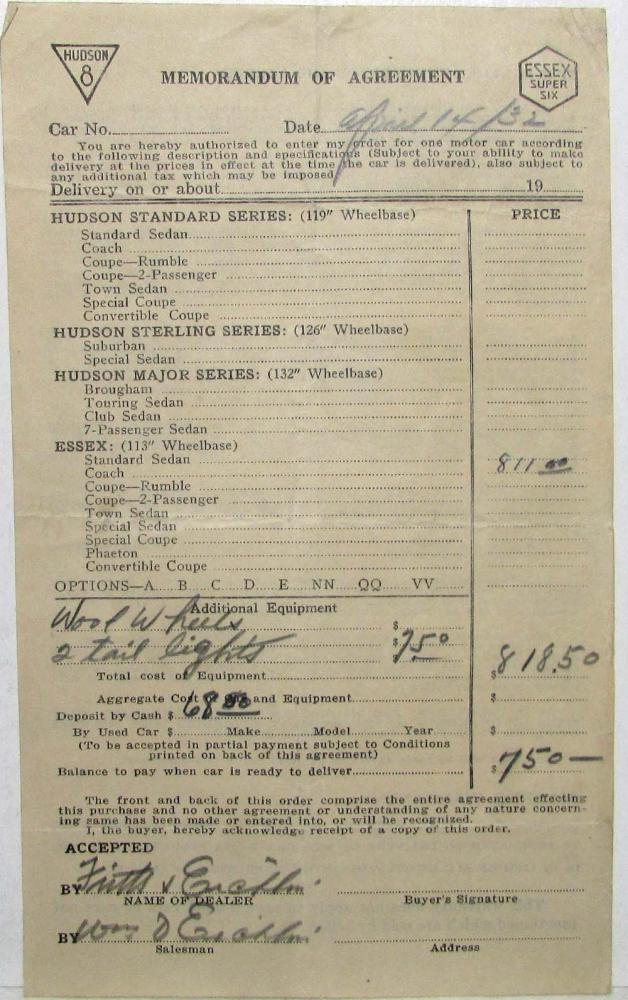 HUDSON 8
MEMORANDUM OF AGREEMENT
ESSEX SUPER SIX
Car No. Date April 14/32
You are hereby authorized to enter my order for one motor car according
to the following description and specifications (Subject to your ability to make
delivery at the prices in effect at the time the car is delivered), also subject to
any additional tax which may be imposed
Delivery on or about 19
HUDSON STANDARD SERIES: (119" Wheelbase) PRICE
Standard Sedan
Coach
Coupe—Rumble
Coupe—2-Passenger
Town Sedan
Special Coupe
Convertible Coupe
HUDSON STERLING SERIES: (126" Wheelbase)
Suburban
Special Sedan
HUDSON MAJOR SERIES: (132" Wheelbase)
Brougham
Touring Sedan
Club Sedan
7-Passenger Sedan
ESSEX: (113" Wheelbase)
Standard Sedan 811 00
Coach
Coupe—Rumble
Coupe—2-Passenger
Town Sedan
Special Sedan
Special Coupe
Phaeton
Convertible Coupe
OPTIONS—A B C D E NN QQ VV
Additional Equipment
Wool Wheels $
2 tail lights $ 7 50
Total cost of Equipment $ 818.50
Aggregate Cost and Equipment $
Deposit by Cash $ 68 50
By Used Car $ Make Model Year $
(To be accepted in partial payment subject to Conditions
printed on back of this agreement)
Balance to pay when car is ready to deliver $ 750—
The front and back of this order comprise the entire agreement effecting
this purchase and no other agreement or understanding of any nature concern-
ing same has been made or entered into, or will be recognized.
I, the buyer, hereby acknowledge receipt of a copy of this order.
ACCEPTED
BY
NAME OF DEALER Buyer's Signature
BY Wm D
Salesman Address